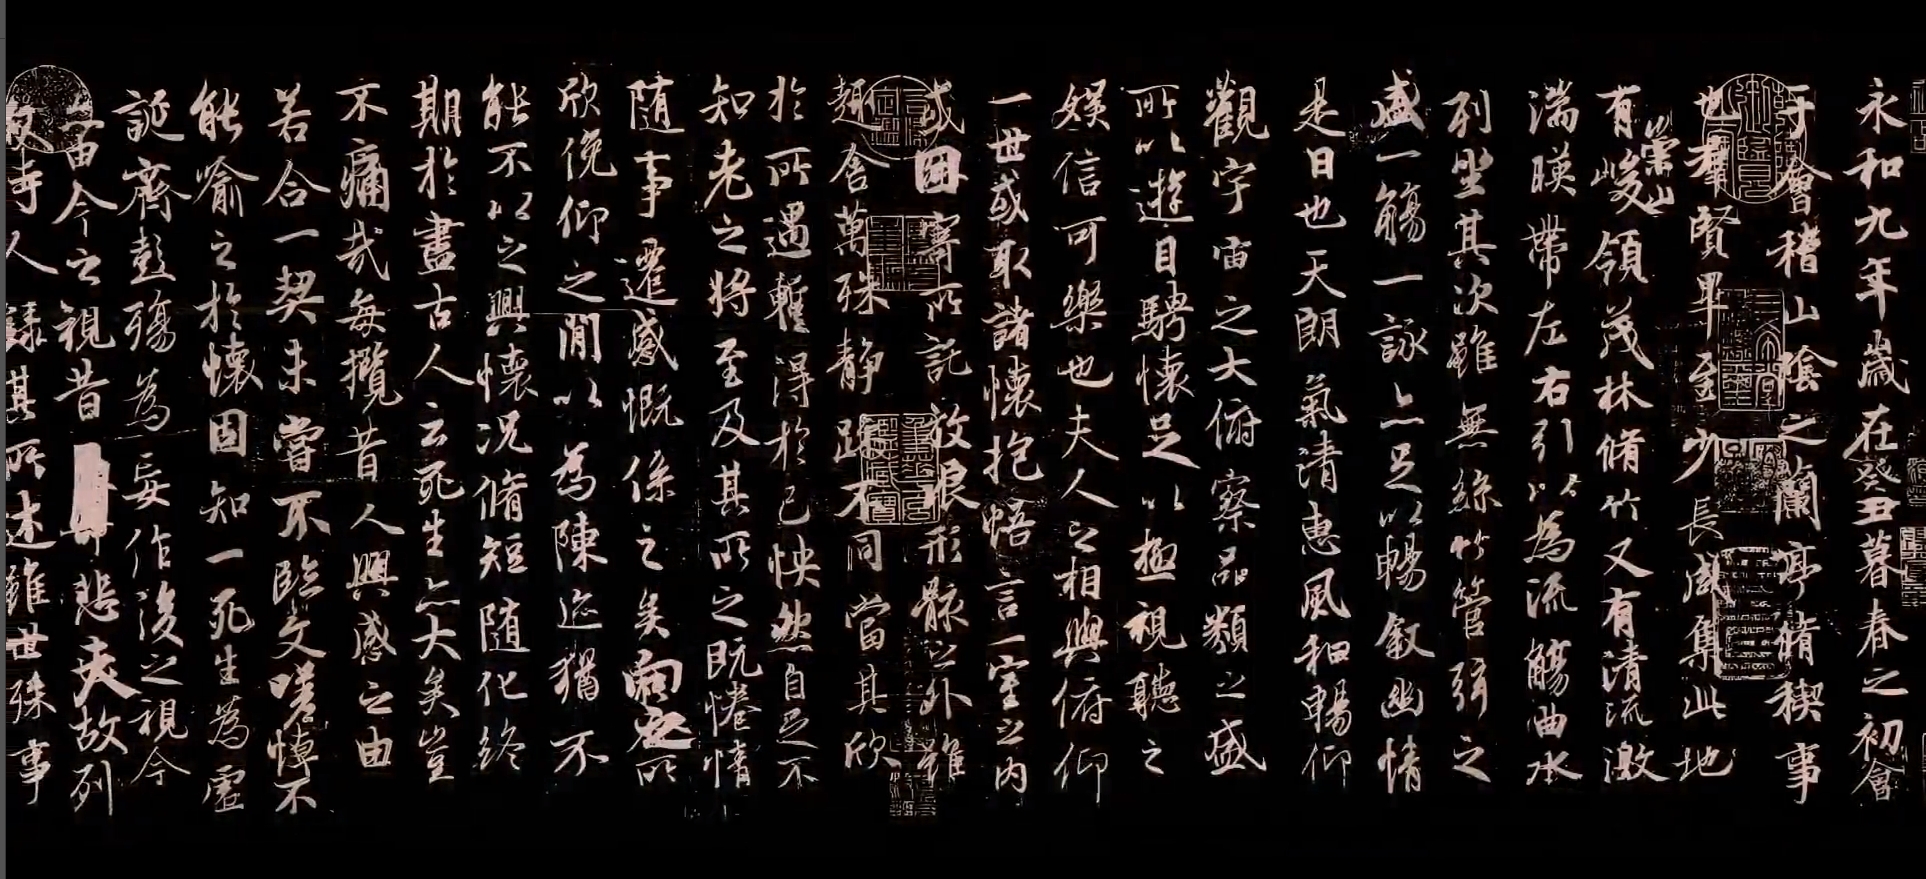 永和九年歲在癸丑暮春之初會
于會稽山陰之蘭亭脩稧事
也羣賢畢至少長咸集此地
有崇山峻領茂林脩竹又有清流激
湍暎帶左右引以為流觴曲水
列坐其次雖無絲竹管弦之
盛一觴一詠亦足以暢敘幽情
是日也天朗氣清惠風和暢仰
觀宇宙之大俯察品類之盛
所以遊目騁懷足以極視聽之
娛信可樂也夫人之相與俯仰
一世或取諸懷抱悟言一室之內
或因寄所託放浪形骸之外雖
趣舍萬殊靜躁不同當其欣
於所遇蹔得於己怏然自足不
知老之將至及其所之既惓情
隨事遷感慨係之矣向之所
欣俛仰之閒以為陳迹猶不
能不以之興懷況脩短隨化終
期於盡古人云死生亦大矣豈
不痛哉每攬昔人興感之由
若合一契未嘗不臨文嗟悼不
能喻之於懷固知一死生為虛
誕齊彭殤為妄作後之視今
亦由今之視昔悲夫故列
敘時人錄其所述雖世殊事